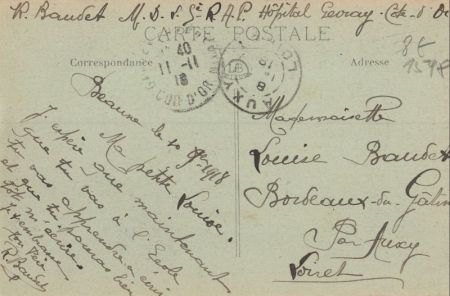 R. Baudet M.D.S. 5e R.A.P. Hôpital Gevray. Cote d'Or
CARTE POSTALE
Correspondance
Adresse
8 €
1548
40
11-11
18
COTE D'OR
AUXY
LOIRET
Beaune le 10 9bre 1918
Ma petite Louise,
J'espère que maintenant
que tu vas à l'Ecole
tu vas apprendre à écrire
et que tu pourras bien
tôt m'écrire
Je t'embrasse
ton Père
R Baudet
Mademoiselle
Louise Baudet
Bordeaux-du-Gâtin
Par Auxy
Loiret